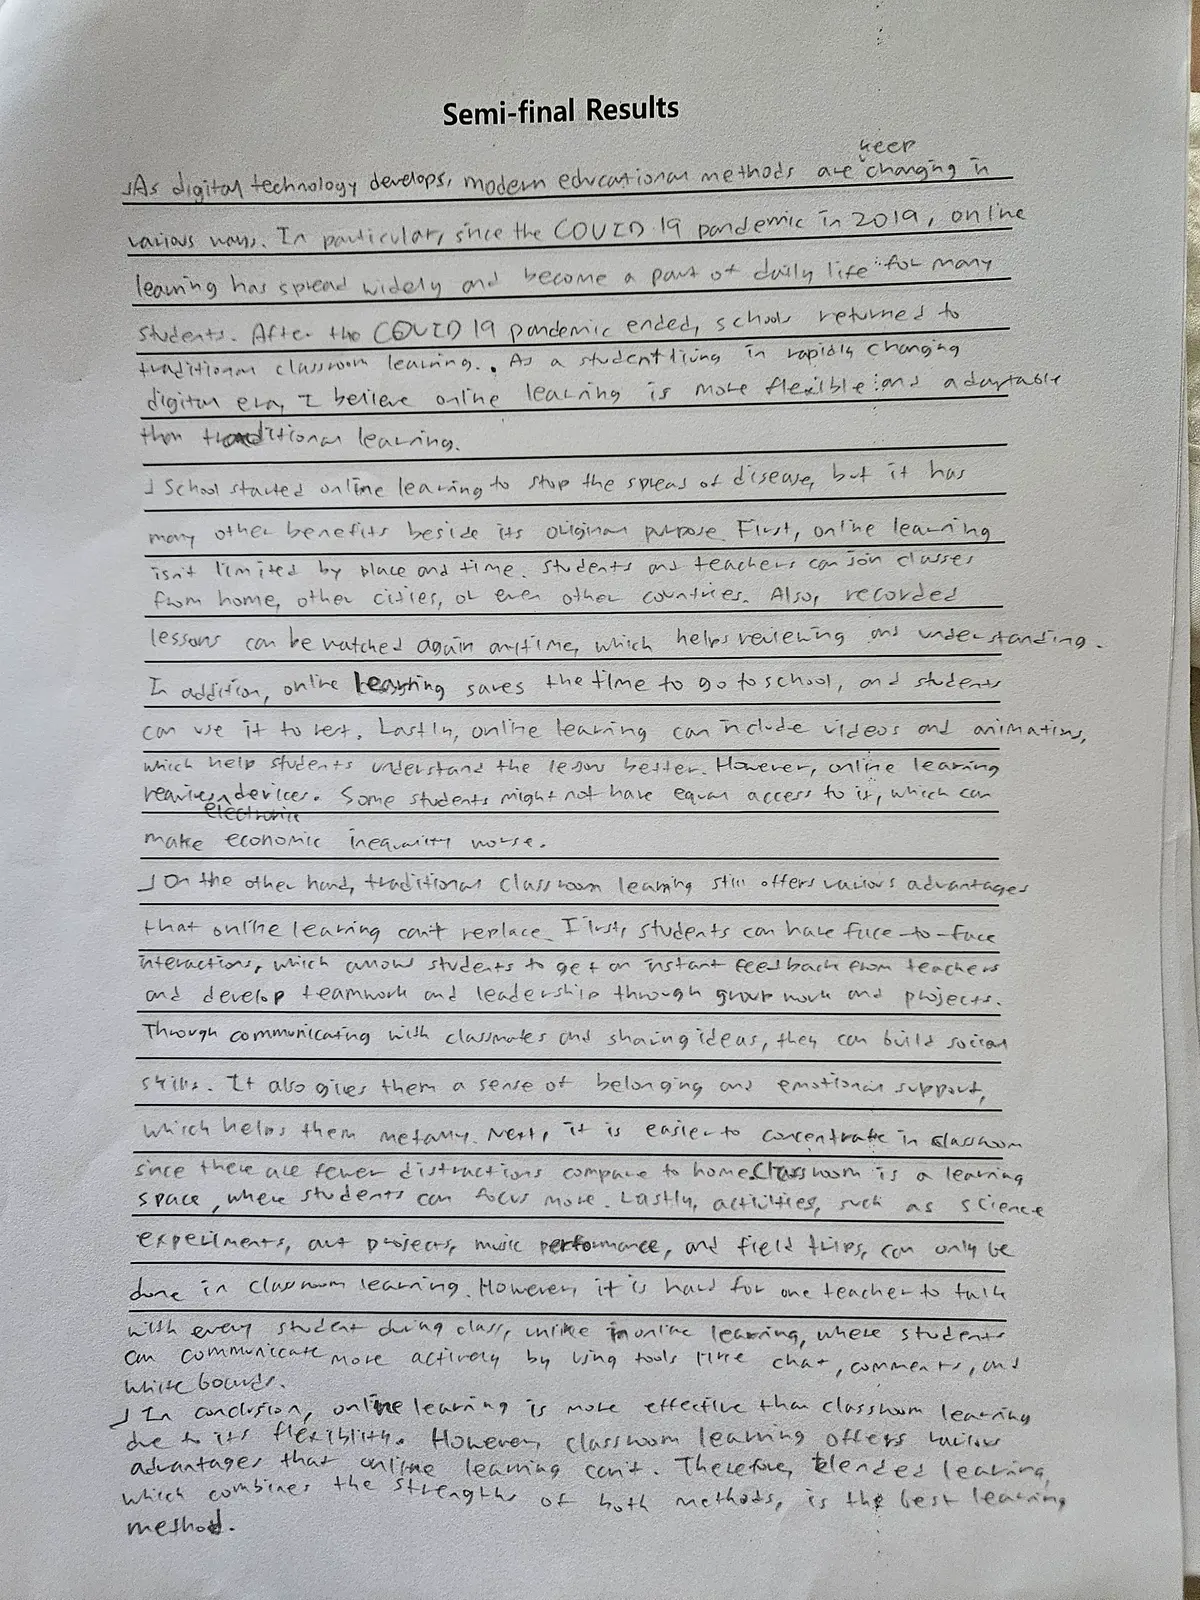 Semi-final Results
keep
As digital technology develops, modern educational methods are changing in
various ways. In particular, since the COVID 19 pandemic in 2019, online
learning has spread widely and become a part of daily life for many
students. After the COVID 19 pandemic ended, schools returned to
traditional classroom learning. As a student living in rapidly changing
digital era, I believe online learning is more flexible and adaptable
than traditional learning.
School started online learning to stop the spread of disease, but it has
many other benefits beside its original purpose. First, online learning
isn't limited by place and time. Students and teachers can join classes
from home, other cities, or even other countries. Also, recorded
lessons can be watched again anytime, which helps reviewing and understanding.
In addition, online learning saves the time to go to school, and students
can use it to rest. Lastly, online learning can include videos and animations,
which help students understand the lessons better. However, online learning
requires devices. Some students might not have equal access to it, which can
electronic
make economic inequality worse.
On the other hand, traditional classroom learning still offers various advantages
that online learning can't replace. First, students can have face-to-face
interactions, which allows students to get an instant feedback from teachers
and develop teamwork and leadership through group work and projects.
Through communicating with classmates and sharing ideas, they can build social
skills. It also gives them a sense of belonging and emotional support,
which helps them metally. Next, it is easier to concentrate in classroom
since there are fewer distractions compare to home. Classroom is a learning
space, where students can focus more. Lastly, activities, such as science
experiments, art projects, music performance, and field trips, can only be
done in classroom learning. However, it is hard for one teacher to talk
with every student during class, unlike in online learning, where students
can communicate more actively by using tools like chat, comments, and
white boards.
In conclusion, online learning is more effective than classroom learning
due to its flexiblity. However, classroom learning offers various
advantages that online learning can't. Therefore, blended learning,
which combines the strengths of both methods, is the best learning
method.